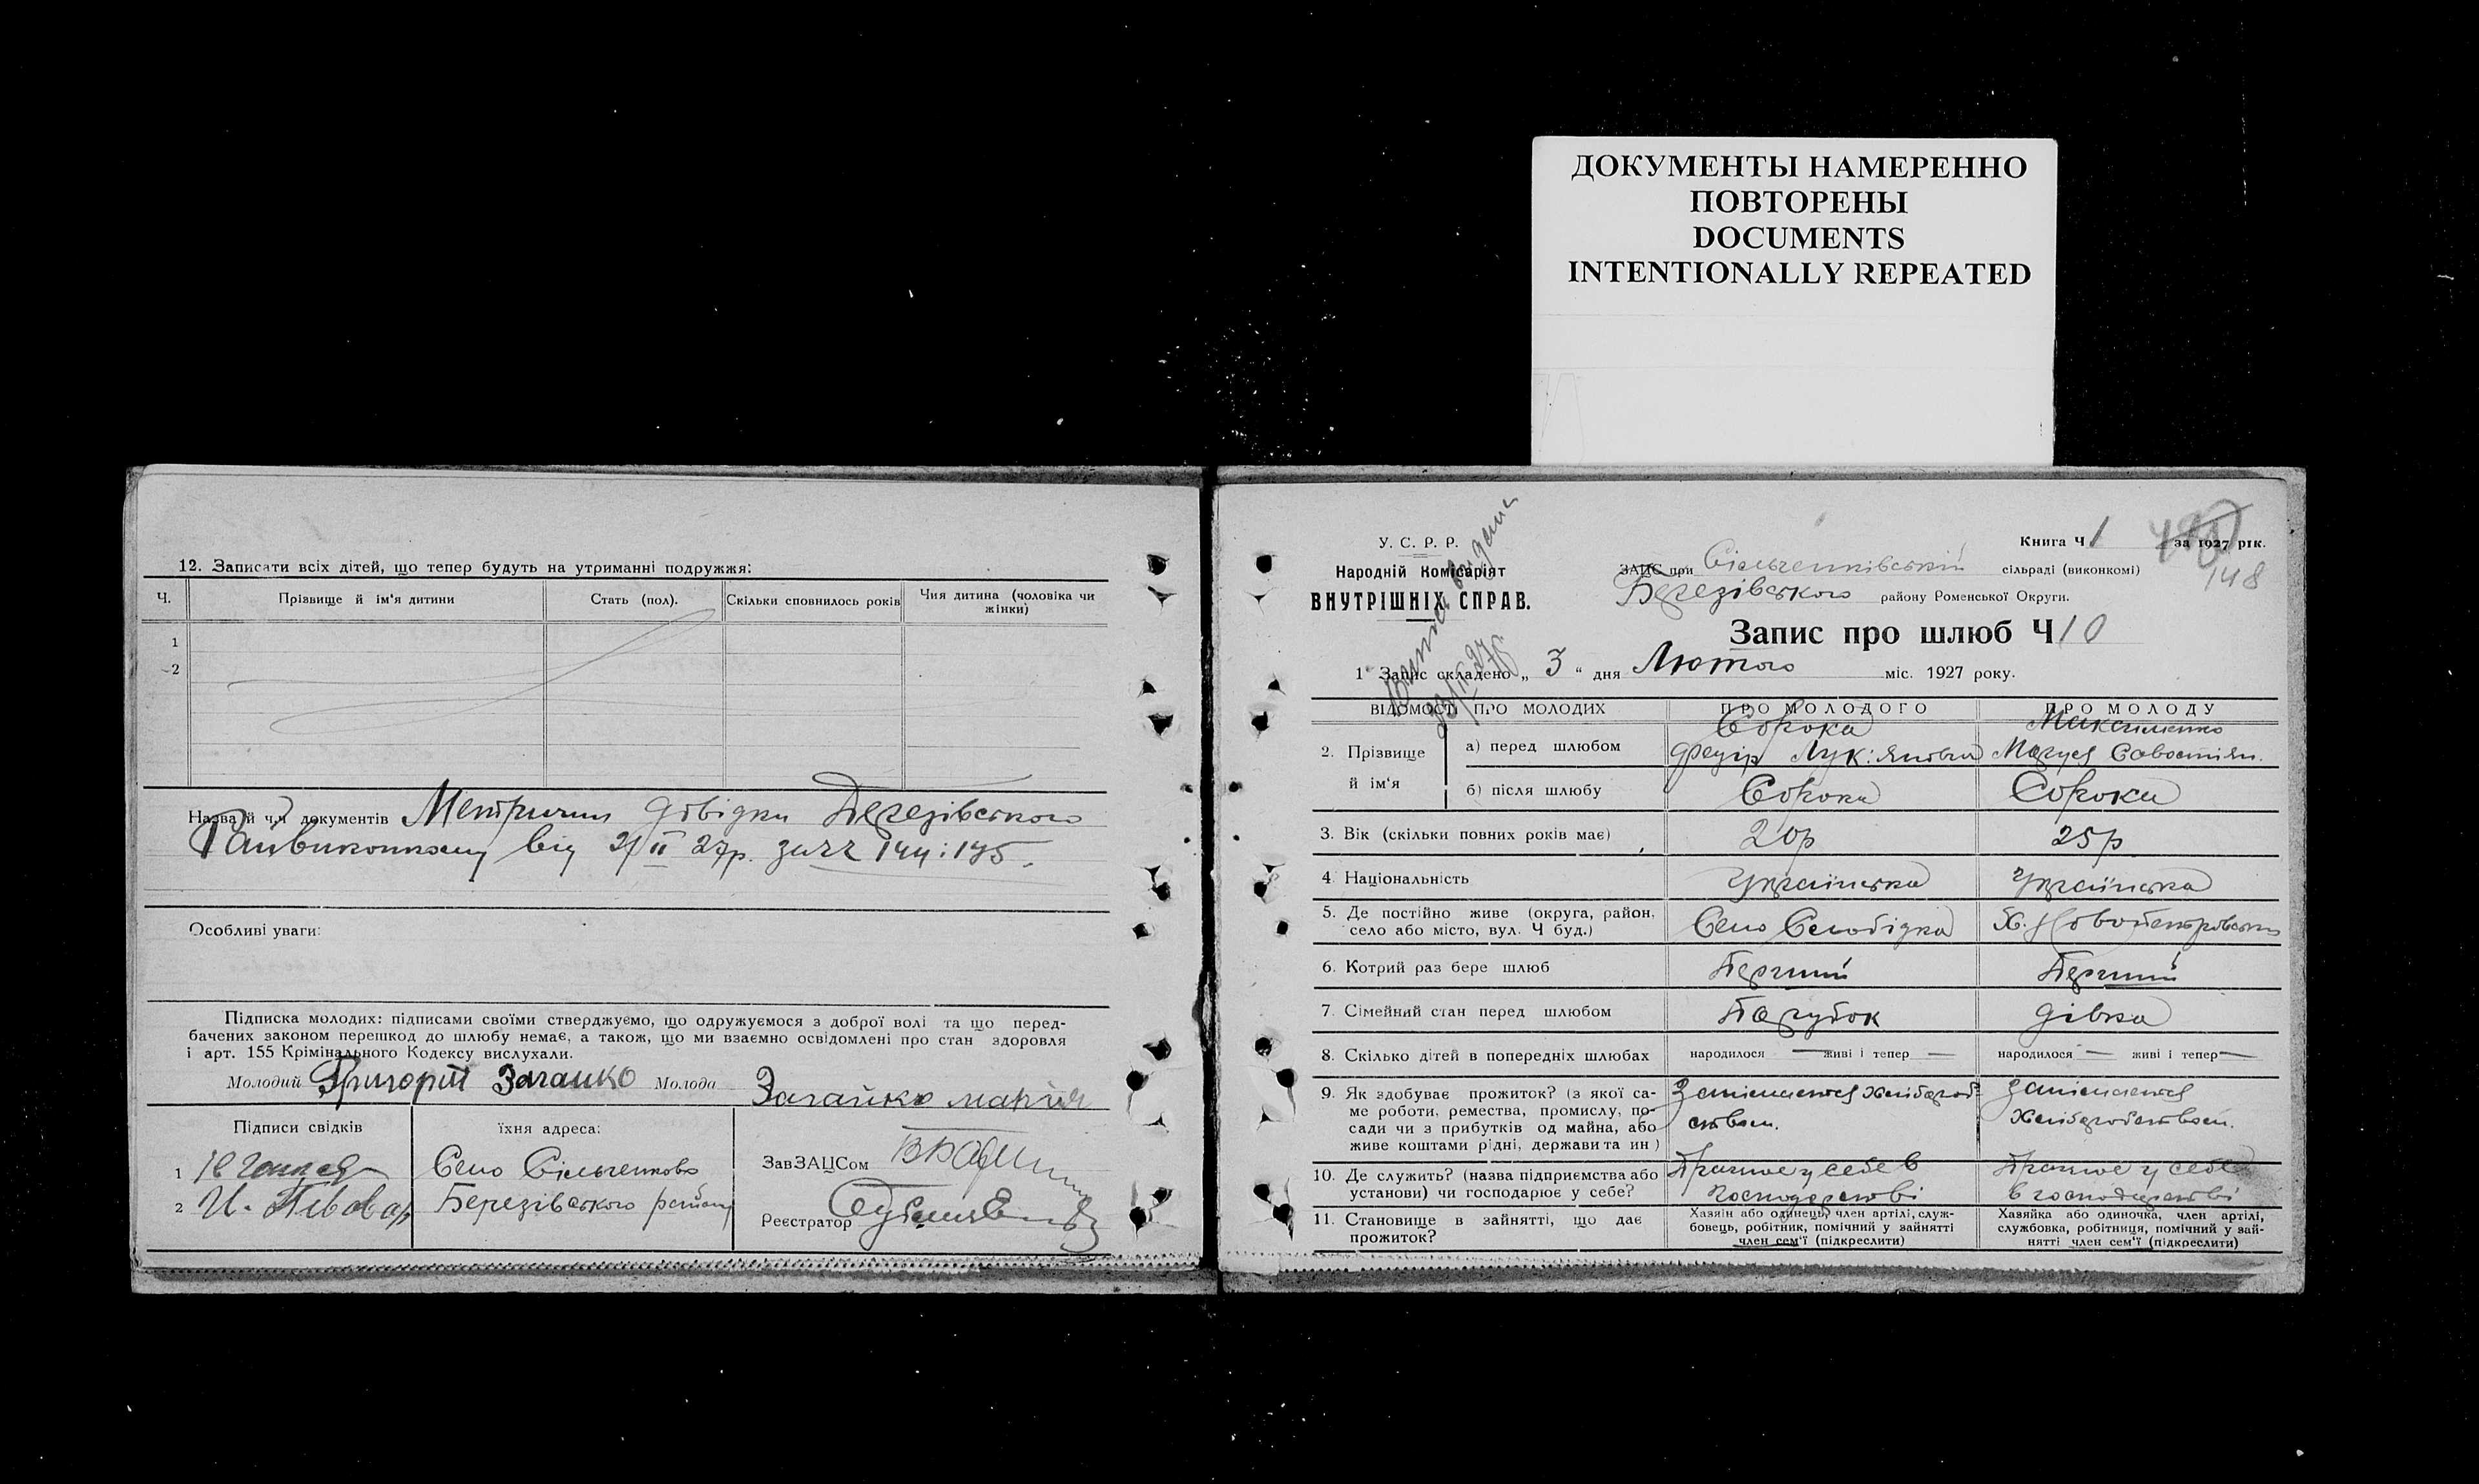 ДОКУМЕНТЫ НАМЕРЕННО
ПОВТОРЕНЫ
DOCUMENTS
INTENTIONALLY REPEATED
12. Записати всіх дітей, що тепер будуть на утриманні подружжя:
Ч. Прізвище й ім'я дитини Стать (пол). Скільки сповнилось років Чия дитина (чоловіка чи жінки)
1
2
Назва й ч.ч документів Метричні довідки Березівського
Райвиконкому від 2/II 27р. за
Особливі уваги:
Підписка молодих: підписами своїми стверджуємо, що одружуємося з доброї волі та що перед-
бачених законом перешкод до шлюбу немає, а також, що ми взаємно освідомлені про стан здоровля
і арт. 155 Крімінального Кодексу вислухали.
Молодий Григорій Загайко Молода Загайко Марія
Підписи свідків їхня адреса:
1 Село Сільченково ЗавЗАЦСом
2 И. Пивовар Березівського району Реєстратор
У. С. Р. Р.
Народній Комісаріят
ВНУТРІШНІХ СПРАВ.
Книга Ч 1 за 1927 рік.
148
ЗАЦС при Сільченківській сільраді (виконкомі)
Березівського району Роменської Округи.
Запис про шлюб Ч 10
1 Запис складено „ 3 “ дня Лютого міс. 1927 року.
ВІДОМОСТІ ПРО МОЛОДИХ ПРО МОЛОДОГО ПРО МОЛОДУ
2. Прізвище й ім'я
а) перед шлюбом Сорока Лук'янович Максименко Маруся Савостіян.
б) після шлюбу Сорока Сорока
3. Вік (скільки повних років має) 20р 25р
4. Національність Українська Українська
5. Де постійно живе (округа, район,
село або місто, вул. Ч буд.) Село Слобідка Х. Новопетровськ
6. Котрий раз бере шлюб Перший Перший
7. Сімейний стан перед шлюбом Парубок дівка
8. Скілько дітей в попередніх шлюбах народилося — живі і тепер — народилося — живі і тепер —
9. Як здобуває прожиток? (з якої са-
ме роботи, ремества, промислу, по-
сади чи з прибутків од майна, або
живе коштами рідні, держави та ин)
Занімается хліборобством. Занімается хліборобством.
10. Де служить? (назва підприємства або
установи) чи господарює у себе?
Працює у себе в господарстві Працює у себе в господарстві
11. Становище в зайнятті, що дає
прожиток?
Хазяїн або одинець, член артілі, служ-
бовець, робітник, помічний у зайнятті
член сем'ї (підкреслити)
Хазяйка або одиночка, член артілі,
службовка, робітниця, помічний у зай-
нятті член сем'ї (підкреслити)